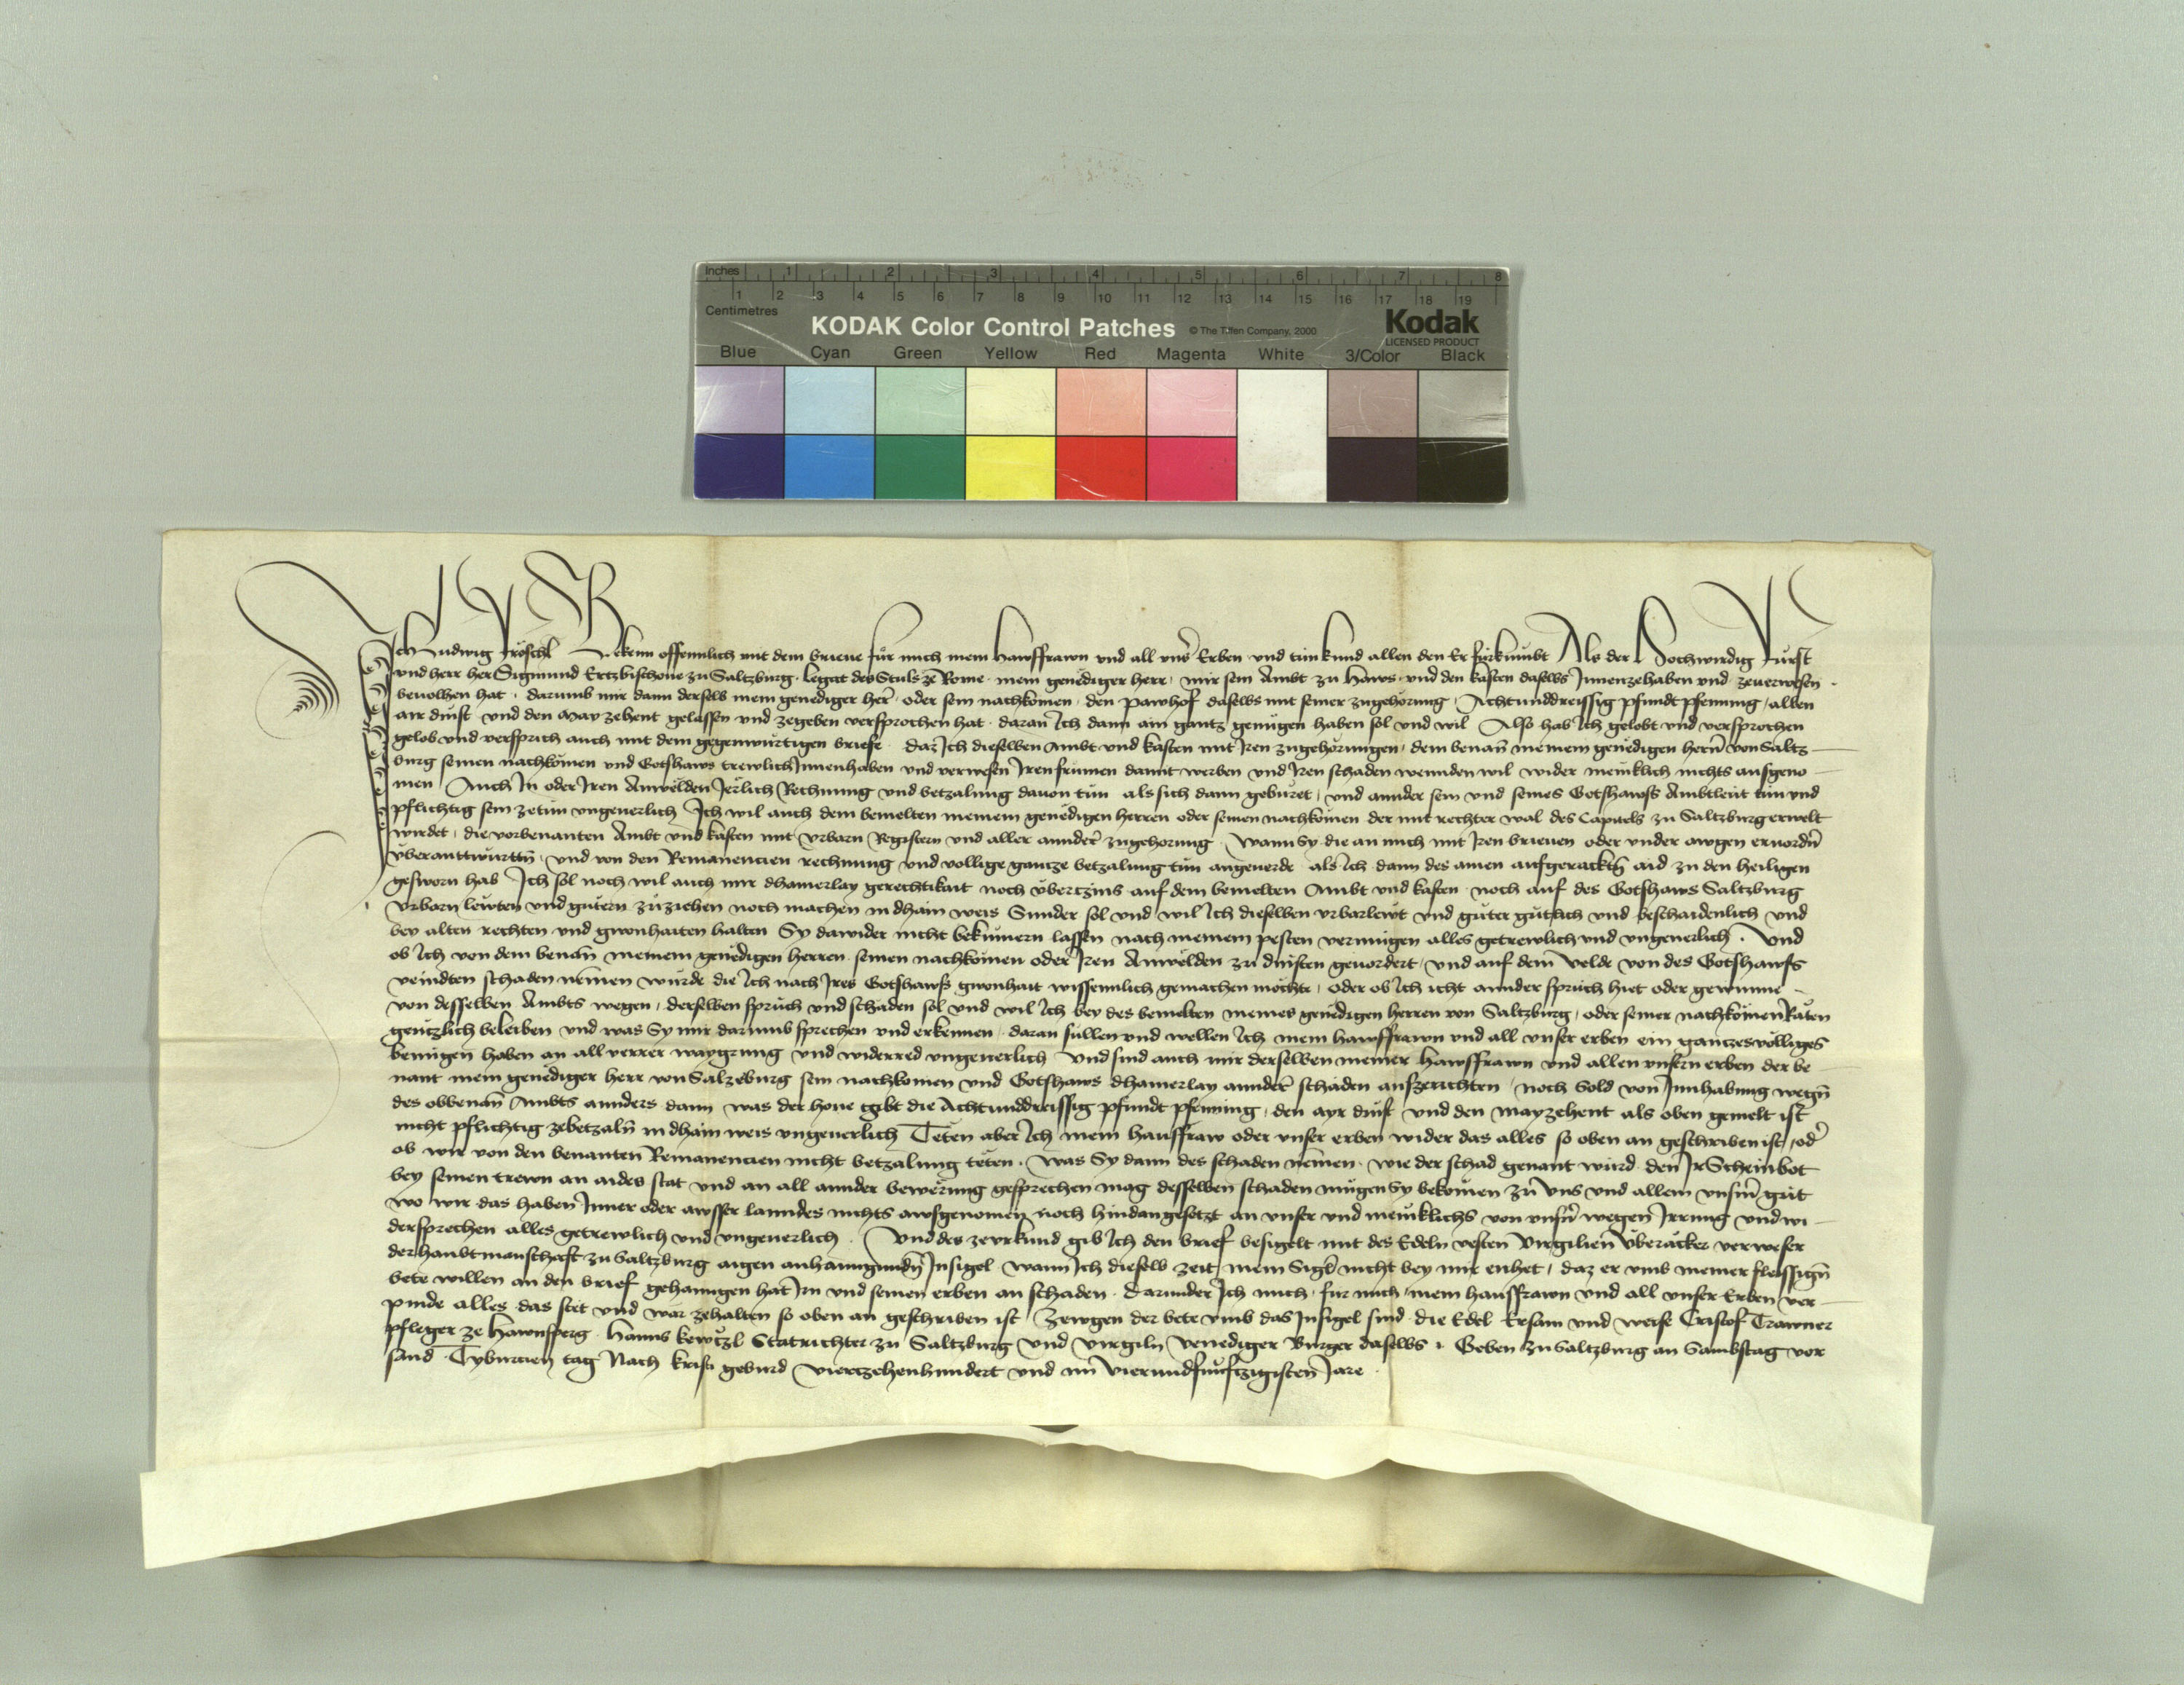 Inches 1 2 3 4 5 6 7 8
Centimetres 1 2 3 4 5 6 7 8 9 10 11 12 13 14 15 16 17 18 19
KODAK Color Control Patches © The Tiffen Company, 2000 Kodak
LICENSED PRODUCT
Blue Cyan Green Yellow Red Magenta White 3/Color Black
Ich Ludwig Fröschl Bekenn offennlich mit dem brieue für mich mein Hawsfrawn und all vnser Erben und tun kund allen den Er fürkumbt Als der Hochwirdig Fürst
und herr her Sigmund Ertzbischoue zu Saltzburg Legat des Stuls ze Rome mein genediger herr mir sein Ambt zu Haws und den kasten daselbs Innzehaben und zeuerwesen
beuolhen hat darumb mir dann derselb mein genediger her oder sein nachkomen den pawhof daselbs mit seiner zugehörung Achtunddreissig pfundt pfenning allen
air dinst und den May zehent gelassen und zegeben versprochen hat daran Ich dann ain gantz genügen haben sol und wil Also hab Ich gelobt und versprochen
gelob und versprich auch mit dem gegenwürtigen brieue daz Ich dieselben Ambt und kasten mit Iren zugehörungen dem benan meinem genedigen hern von Saltz-
burg seinen nachkomen und Gotshaws trewlich Innenhaben und verwesen Iren frumen damit werben und Iren schaden wennden wil wider meniklich nichts ausgeno-
men Auch In oder Iren Anwëlden Jerlich Rechnung und betzalung dauon tun als sich dann gebüret und annder sein und seines Gotshawss Ambtleut tun und
pflichtig sein zetun ungeuerlich Ich wil auch dem bemelten meinem genedigen herren oder seinen nachkomen der mit rechter wal des Capitels zu Saltzburg erwelt
wirdet die vorbenanten Ambt und kasten mit Urbarn Registern und aller annder zugehorung Wann Sy die an mich mit Iren brieuen oder under awgen eruordn
überanttwurttn und von den Remanencien rechnung und vollige gantze betzalung tun angeuerde als Ich dann des ainen aufgerackten aid zu den heiligen
gesworn hab Ich sol noch wil auch mir dhainerlay gerechtikait noch übertzins auf dem bemelten Ambt und kasten noch auf des Gotshaws Saltzburg
Urbarn lewten und gütern zuziehen noch machen in dhain weis Sunder sol und wil Ich dieselben urbarlewt und güter gütlich und beschaidenlich und
bey alten rechten und gwonhaiten halten Sy dawider nicht bekumern lassen nach meinem pesten vermügen alles getrewlich und ungeuerlich Und
ob Ich von dem benan meinem genedigen herren seinen nachkomen oder Iren Anwëlden zu dinsten geuordert und auf dem velde von des Gotshawss
veindten schaden nemen würde die Ich nach Ires Gotshawss gwonhait wissennlich gemachen möchte oder ob Ich icht annder spruch hiet oder gewunne
von desselben Ambts wegen derselben spruch und schaden sol und wil Ich bey des bemelten meines genedigen herren von Saltzburg oder seiner nachkomen Räten
gentzlich beleiben und was Sy mir darumb sprechen und erkennen daran süllen und wellen Ich mein hawsfrawn und all unser erben ein gantzes völliges
benügen haben an all verrer waygrung und widerred ungeuerlich Und sind auch mir derselben meiner hawsfrawn und allen unsern erben der be-
nant mein genediger herr von Saltzeburg sein nachkomen und Gotshaws dhainerlay annder schäden auszerichten noch Sold von Innhabung wegn
des obbenan Ambts annders dann was der houe gibt die Achtunddreissig pfundt pfenning den ayr dinst und den mayzehent als oben gemelt ist
nicht pflichtig zebetzaln in dhain weis ungeuerlich Teten aber Ich mein hausfraw oder unser erben wider das alles so oben an geschriben ist od
ob wir von den benanten Remanencien nicht betzalung teten Was Sy dann des schaden nemen wie der schad genant würd den Ir Scheinbot
bey seinen trewn an aides stat und an all annder bewerung gesprechen mag desselben schaden mügen Sy bekomen zu Uns und allem unserm gut
wo wir das haben Inner oder awsser lanndes nichts awsgenomen noch hindangesetzt an unser und meniklichs von unsern wegen Irrung und wi-
dersprechen alles getrewlich und ungeuerlich Und des zeurkund gib Ich den brief besigelt mit des Edeln vesten Virgilien Überäcker verweser
der haubtmanschaft zu Saltzburg aigen anhanngundn Insigel Wann Ich dieselb zeit mein Sigel nicht bey mir enhet daz er umb meiner fleissign
bete willen an den brief gehanngen hat Im und seinen erben an schaden Darunder Ich mich für mich mein hausfrawn und all unser Erben ver-
pinde alles das stet und war zehalten so oben an geschriben ist Zewgen der bete umb das Insigel sind die Edel Ersam und weise Cristof Trawner
pfleger ze Hawnsperg Hanns kewtzl Statrichter zu Saltzburg und Virgiln Venediger Burger daselbs Geben zu Saltzburg an Sambstag vor
sand Tyburcien tag Nach kristi geburd Viertzehenhundert und im Vierundfunftzigisten Jare